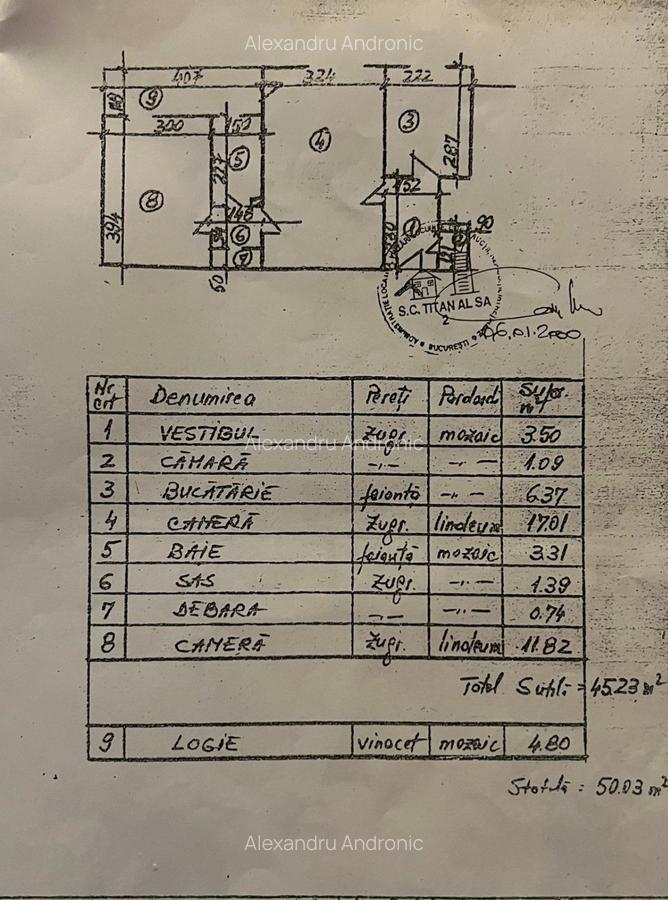 Alexandru Andronic
407 324 222
9
300 150
3
4
5
287
217
8
152
148
394
6
1
90
7
50
S.C. TITAN AL SA
2
BUCUREȘTI
06.01.2000
Nr. crt Denumirea Pereți Pardoseli Supr. m²
1 VESTIBUL zugr. mozaic 3.50
Alexandru Andronic
2 CĂMARĂ -"- -"- 1.09
3 BUCĂTĂRIE faianță -"- 6.37
4 CAMERĂ zugr. linoleum 17.01
5 BAIE faianță mozaic 3.31
6 SAS zugr. -"- 1.39
7 DEBARA -"- -"- 0.74
8 CAMERĂ zugr. linoleum 11.82
Total Sutilă = 45.23 m²
9 LOGIE vinacet mozaic 4.80
Stotală : 50.03 m²
Alexandru Andronic